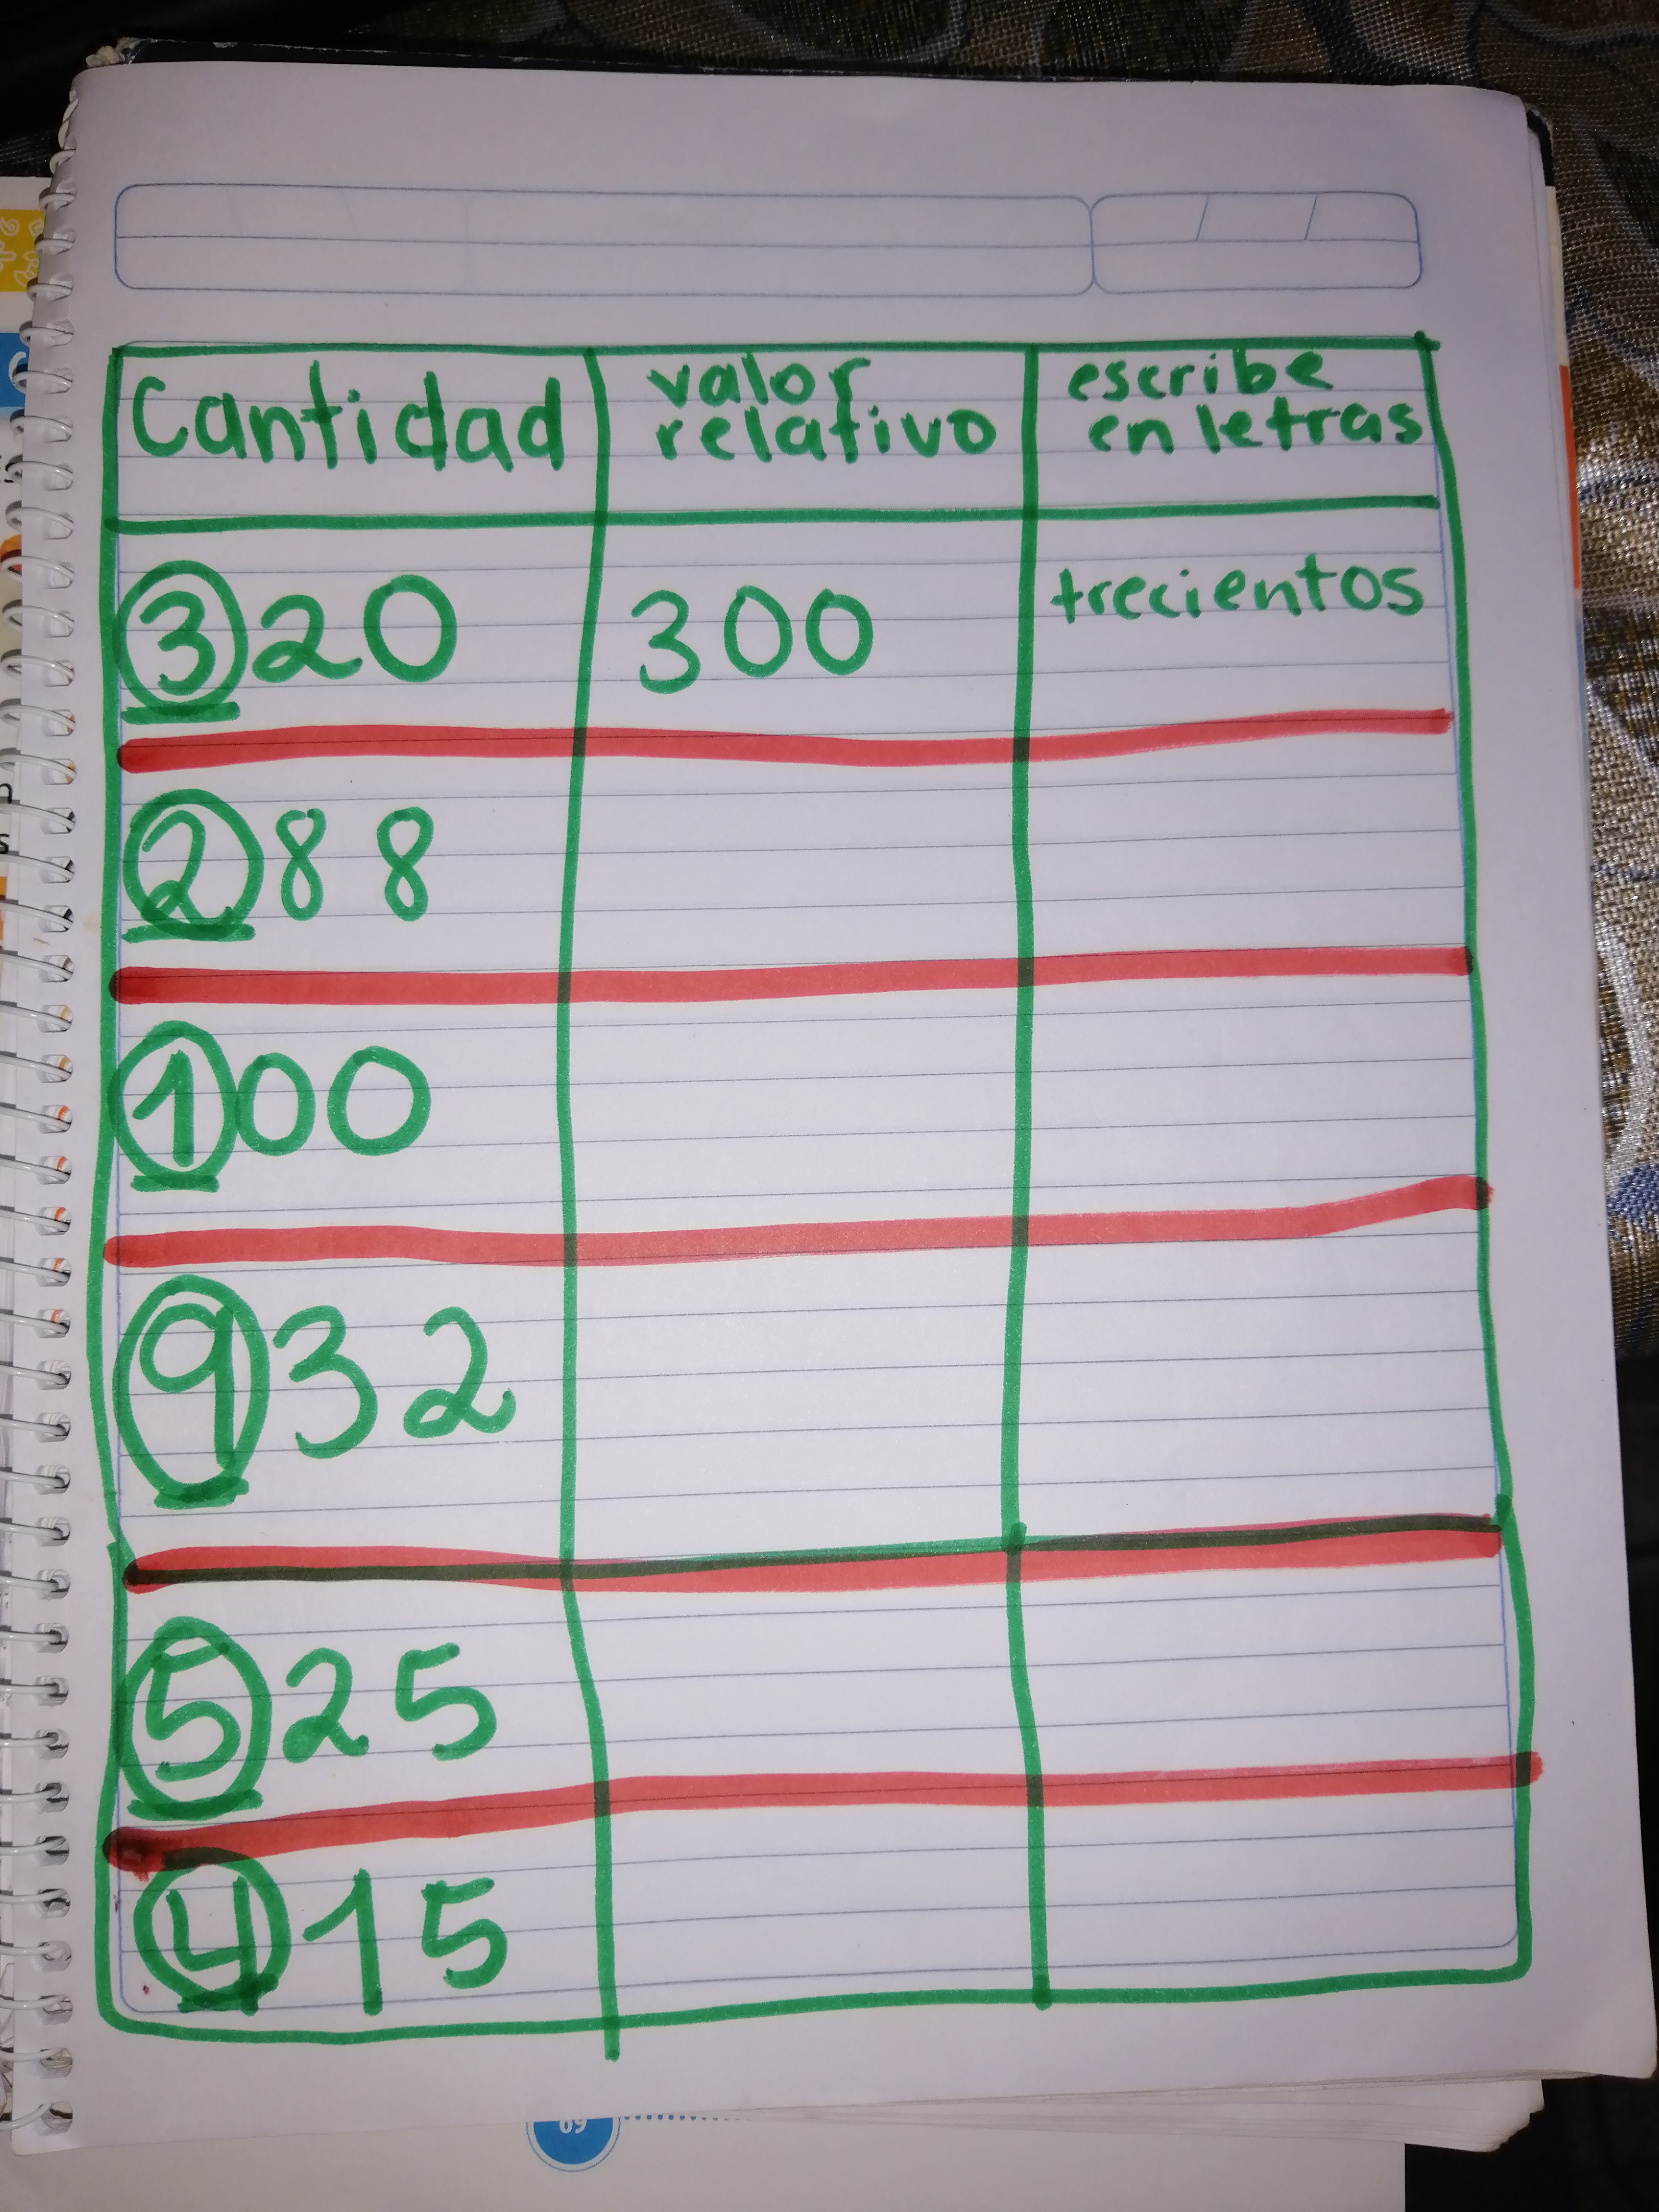 Cantidad
valor
relativo
escribe
en letras
320
300
trecientos
288
100
932
525
415
69